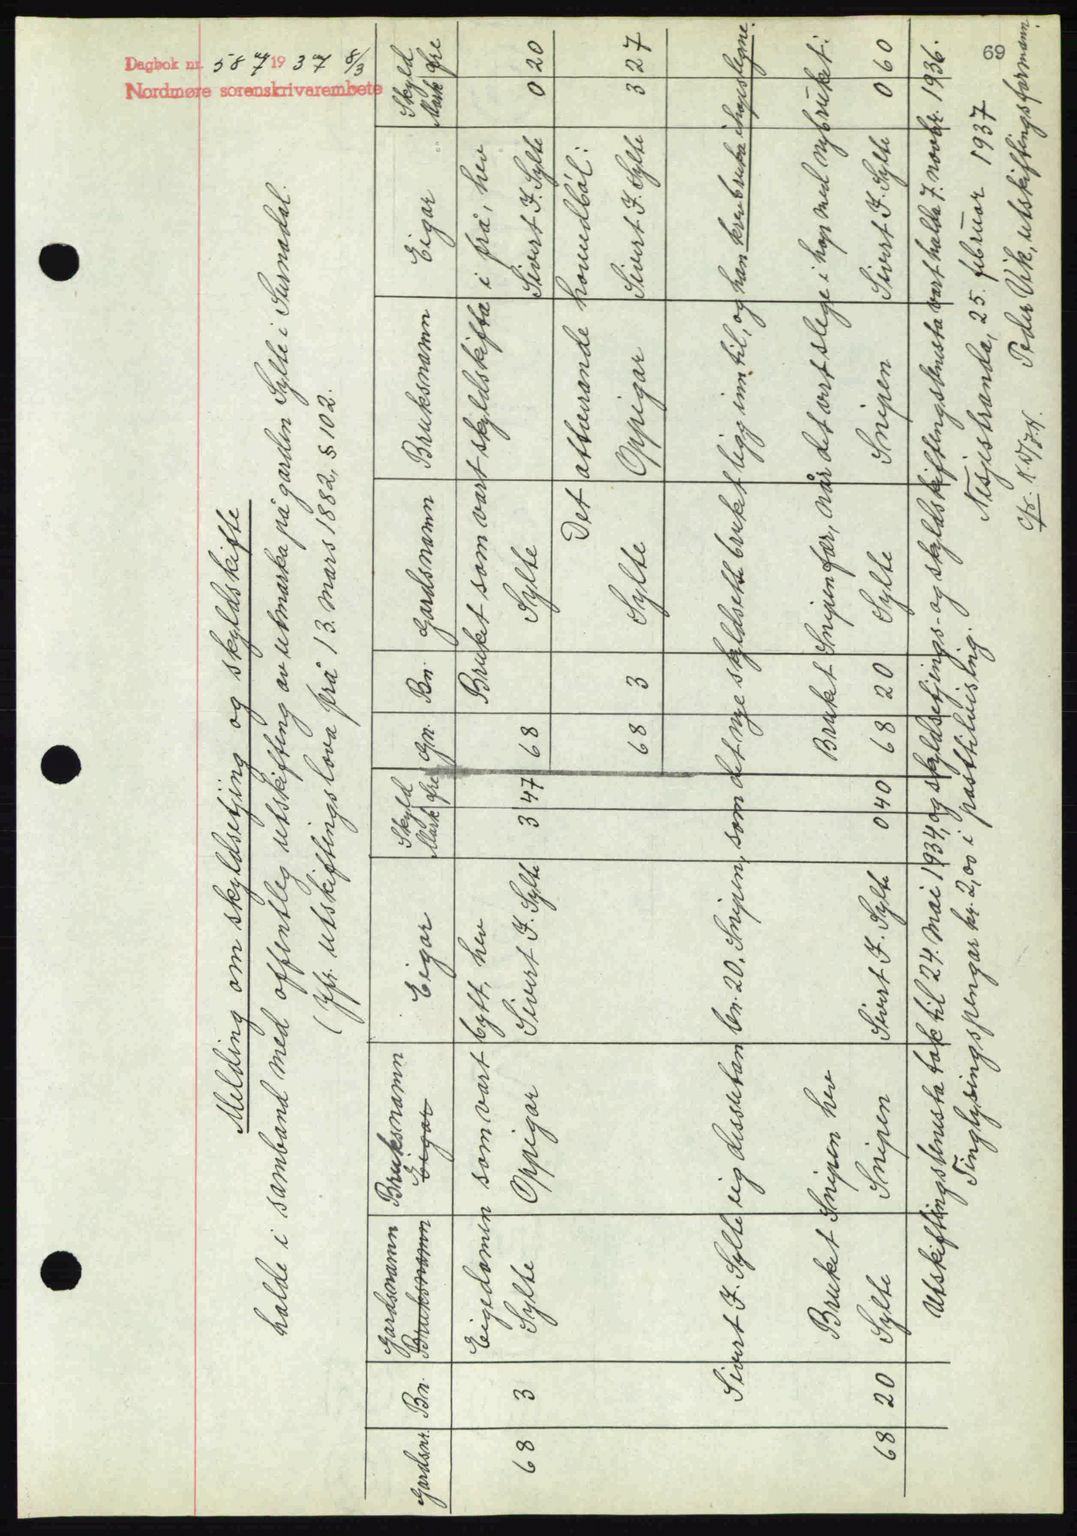 Dagbok nr. 587 1937 8/3
Nordmøre sorenskrivarembete
69
Melding om skyldsetjing og skyldskifte
halde i samband med offentleg utskifting av utmarka på garden Sylte i Surnadal.
(Jfr. utskiftingslova frå 13. mars 1882, § 102.
Gardsnr. Bn. Gardsnamn Bruksnamn Bruksnamn Eigar Eigar Skyld Mark Øre Gn. Bn. Gardsnamn Bruksnamn Eigar Skyld Mark Øre
Eigedomen som vart bytt, hev Bruket som vart skyldskifta i frå, hev
68 3 Sylte Oppigar Sivert I. Sylte 3 47 68 Sylte Sivert I. Sylte 0 20
Det attverande hovudból:
68 3 Sylte Oppigar Sivert I. Sylte 3 27
Sivert I. Sylte eig dessutan bn. 20, Snipen, som det nye skyldsette bruket ligg inn til, og han
Bruket Snipen hev Bruket Snipen fær, når det vert slege i hop med nybruket:
68 20 Sylte Snipen Sivert I. Sylte 0 40 68 20 Sylte Snipen Sivert I. Sylte 0 60
Utskiftingstenesta tok til 24. mai 1934, og skyldsetjings- og skyldskiftingstenesta vart halde 7. novbr. 1936.
Tinglysingspengar kr. 2,00 i posttilvising.
Nesjestranda, 25. februar 1937
Peder Vik, utskiftingsformann.